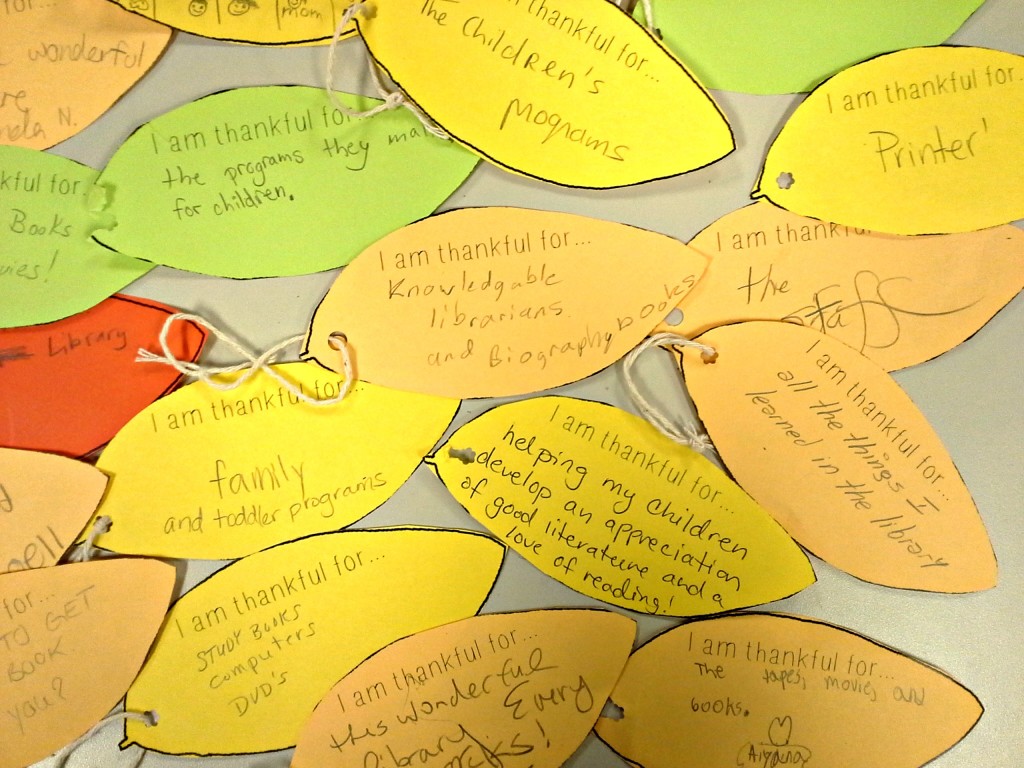 for...
wonderful
re
nela N.
mom
I am thankful for...
The Children's
programs
I am thankful for...
Printer'
I am thankful for
the programs they ma
for children.
kful for
Books
vies!
I am thankful for...
Knowledgable
librarians.
and Biography books
I am thankful
the
staff
Library
I am thankful for...
family
and toddler programs
I am thankful for...
helping my children
develop an appreciation
of good literature and a
love of reading!
I am thankful for...
all the things I
learned in the library
nell
for...
TO GET
BOOK.
you?
I am thankful for...
STUDY BOOKS
computers
DVD's
I am thankful for...
this wonderful
library. Every
I am thankful for...
The tapes, movies, and
books.
Aiyana